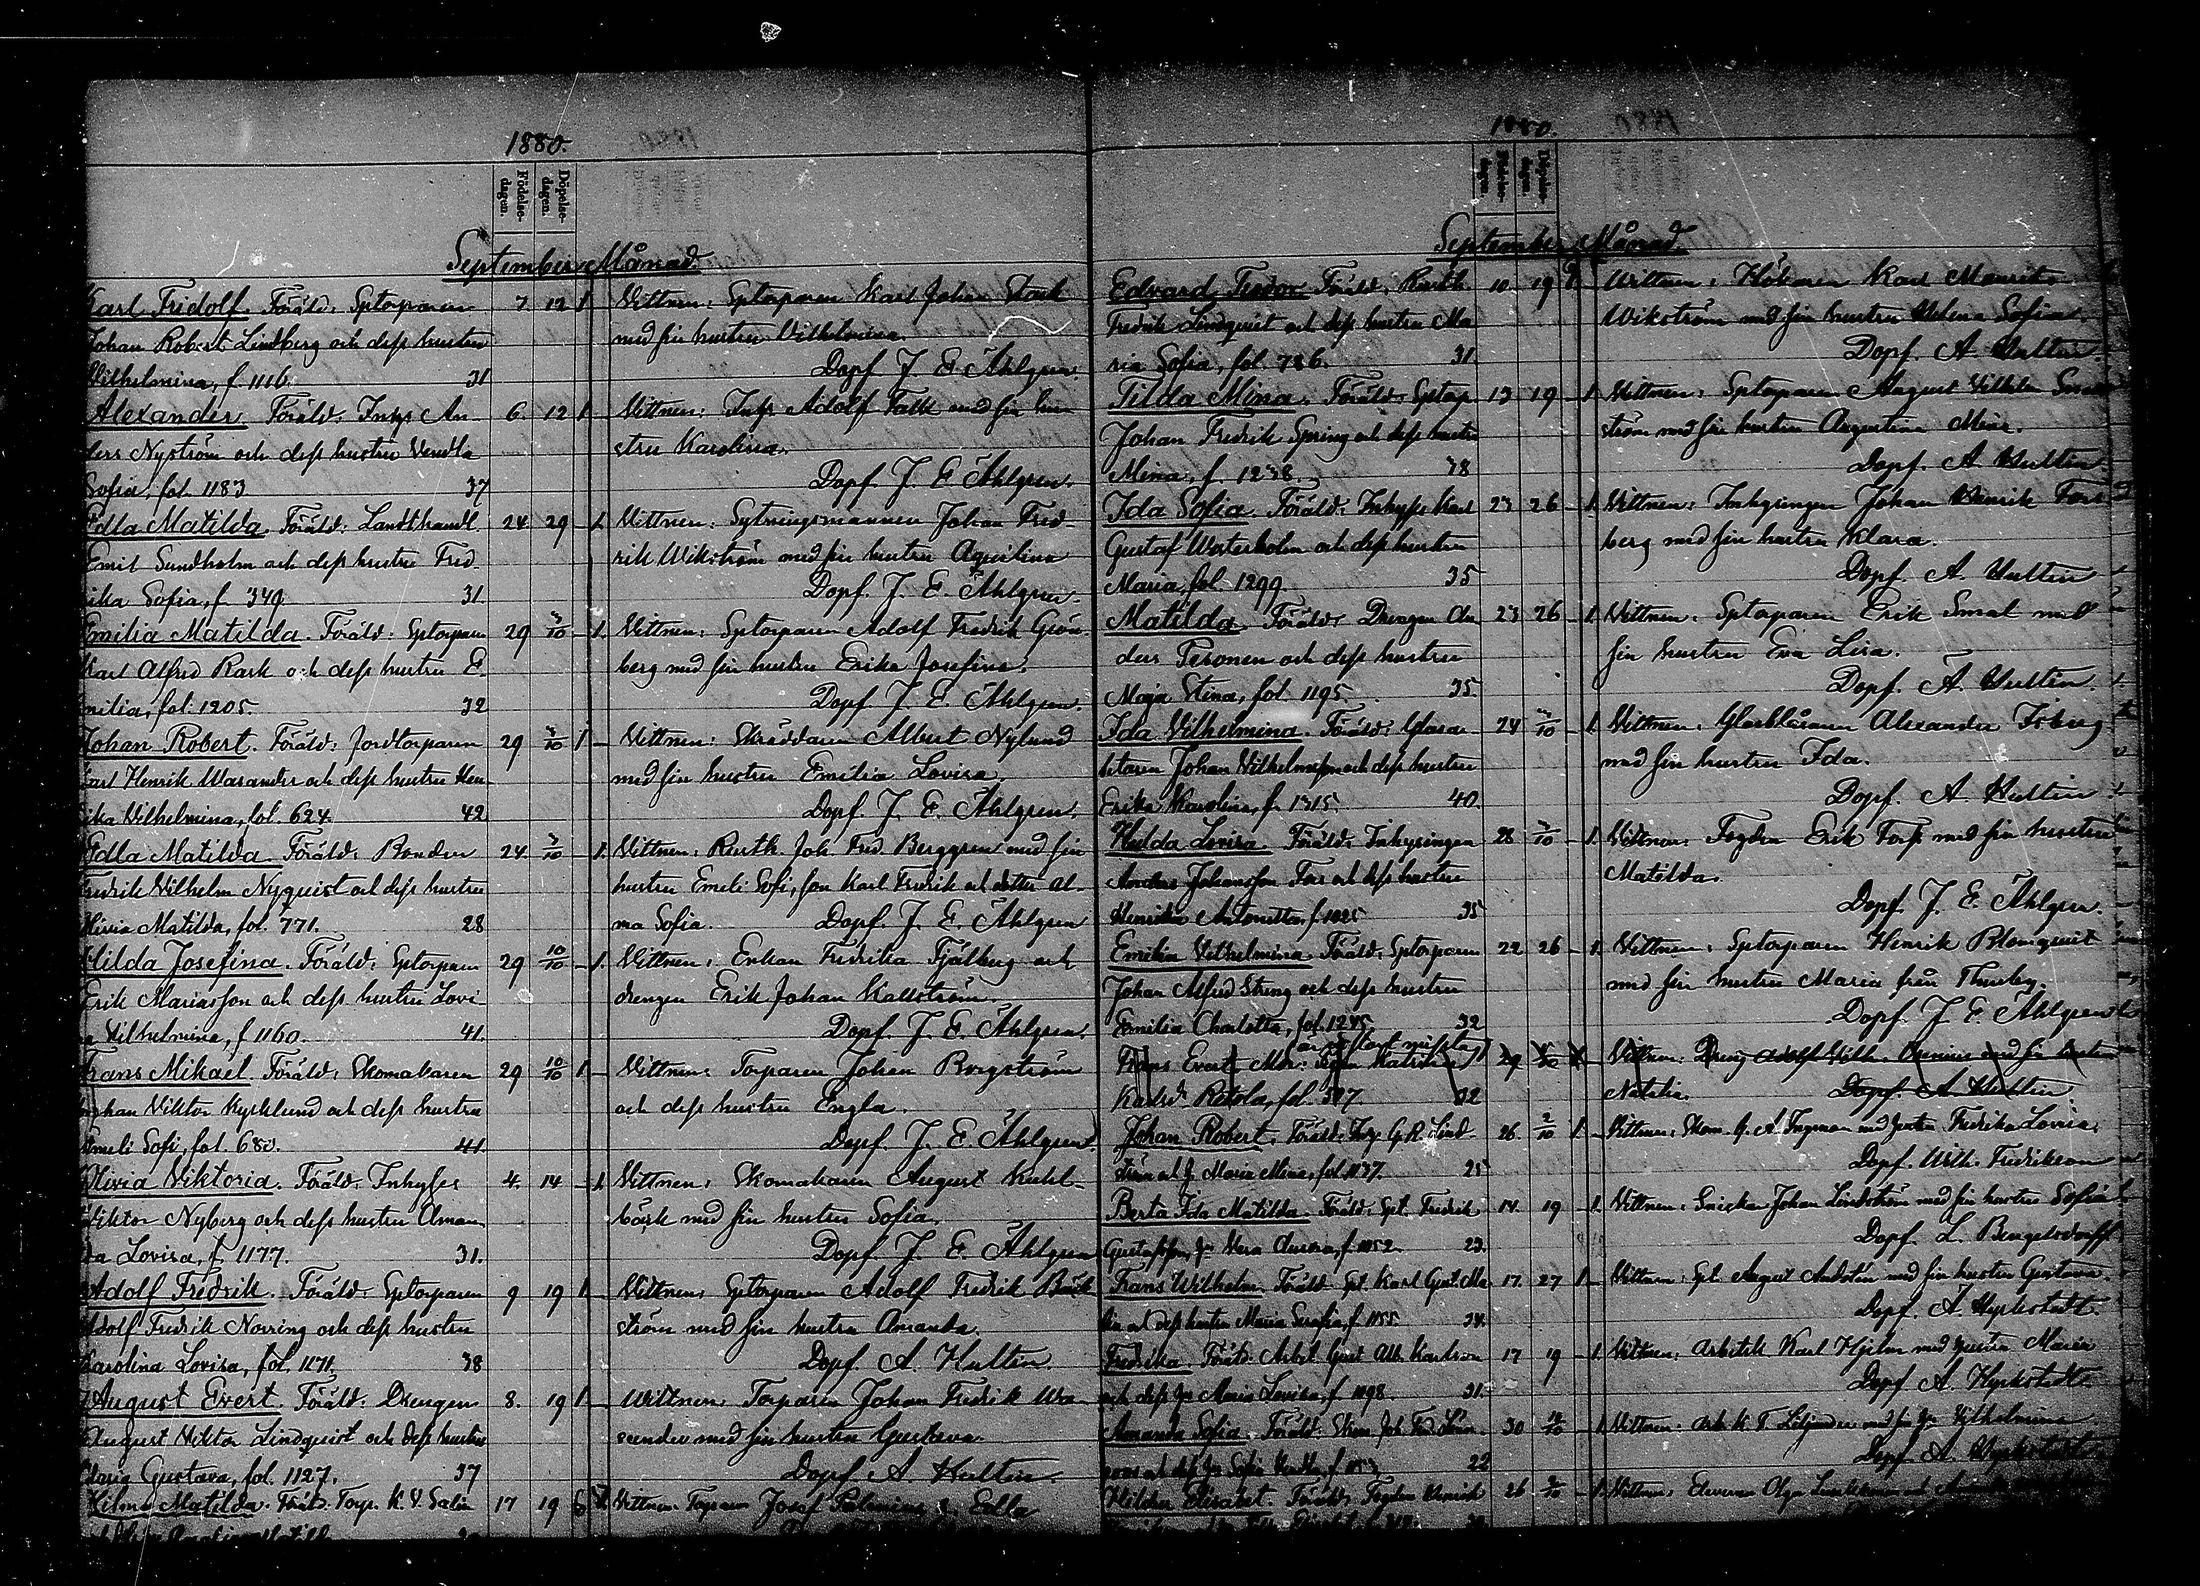 1880.
Födelse-dagen. Döpelse-dagen.
September Månad.
Karl Fridolf. Föräld: Sptorparen 7 12 1
Johan Robert Lindberg och dess hustru
Vilhelmina, f. 1116. 31
Vittnen: Sptorparen Karl Johan Stark
med sin hustru Vilhelmina.
Döpf. J. E. Åhlgren.
Alexander. Föräld: Inhys An- 6. 12 1
ders Nyström och dess hustru Vendla
Sofia, fol. 1183 37
Vittnen: Inhys Adolf Falk med sin hu-
stru Karolina.
Döpf. J. E. Åhlgren.
Edla Matilda. Föräld: Landthandl. 24. 29 - 1.
Emil Sundholm och dess hustru Fred-
rika Sofia, f. 349. 31.
Vittnen: Sytningsmannen Johan Fred-
rik Wikström med sin hustru Aqvilina
Döpf. J. E. Åhlgren.
Emilia Matilda. Föräld: Sptorparen 29 3/10 - 1.
Karl Alfred Rask och dess hustru E-
milia, fol. 1205. 32
Vittnen: Sptorparen Adolf Fredrik Grön-
berg med sin hustru Erika Josefina.
Döpf. J. E. Åhlgren.
Johan Robert. Föräld: Jordtorparen 29 3/10 1 -
Karl Henrik Warander och dess hustru Hen-
rika Vilhelmina, fol. 624. 42
Vittnen: Skräddaren Albert Nylund
med sin hustru Emilia Lovisa.
Döpf. J. E. Åhlgren.
Edla Matilda. Föräld: Bonden 24. 3/10 - 1.
Fredrik Vilhelm Nyquist och dess hustru
Olivia Matilda, fol. 771. 28
Vittnen: Rusth. Joh. Fred. Berggren med sin
hustru Emeli Sofi, son Karl Fredrik och dotter Al-
ma Sofia. Döpf. J. E. Åhlgren
Hilda Josefina. Föräld: Sptorparen 29 10/10 - 1.
Erik Mariasson och dess hustru Lovi-
sa Vilhelmina, f. 1160. 41.
Vittnen: Enkan Fredrika Fjälberg och
drengen Erik Johan Kallström.
Döpf. J. E. Åhlgren.
Frans Mikael. Föräld: Skomakaren 29 10/10 1 -
Johan Viktor Kyrklund och dess hustru
Emeli Sofi, fol. 680. 41.
Vittnen: Torparen Johan Borgström
och dess hustru Engla.
Döpf. J. E. Åhlgren.
Olivia Viktoria. Föräld: Inhyses 4. 14 - 1.
Viktor Nyberg och dess hustru Aman-
da Lovisa, f. 1177. 31.
Vittnen: Skomakaren August Kuhl-
bäck med sin hustru Sofia.
Döpf. J. E. Åhlgren
Adolf Fredrik. Föräld: Sptorparen 9 19 1 -
Adolf Fredrik Norring och dess hustru
Karolina Lovisa, fol. 1171. 38
Vittnen: Sptorparen Adolf Fredrik Bäck-
ström med sin hustru Amanda.
Döpf. A. Hultin.
August Evert. Föräld: Drengen 8. 19 1 -
August Viktor Lindquist och dess hustru
Maria Gustava, fol. 1127. 37
Wittnen: Torparen Johan Fredrik Wa-
rander med sin hustru Gustava.
Döpf. A. Hultin.
Hilma Matilda. Föräld: Torp. K. V. Salin 17 19
Vittnen: Torparen Josef Palenius & Edla
1880.
Födelse-dagen. Döpelse-dagen.
September Månad.
Edvard Teodor. Föräld: Rusth. 10 19 1 -
Fredrik Lindquist och dess hustru Ma-
ria Sofia, fol. 786. 31.
Wittnen: Hökaren Karl Maurits
Wikström med sin hustru Helena Sofia.
Döpf. A. Hultin.
Tilda Mina. Föräld: Sptorp. 13 19 - 1.
Johan Fredrik Spring och dess hustru
Mina, f. 1238. 38
Vittnen: Sptorparen August Vilhelm
ström med sin hustru Augustina Mina.
Döpf. A. Hultin.
Ida Sofia. Föräld: Inhyses Karl 23 26 - 1.
Gustaf Westerholm och dess hustru
Maria, fol. 1299. 35
Vittnen: Inhysingen Johan Henrik Fors-
berg med sin hustru Klara.
Döpf. A. Hultin
Matilda. Föräld: Drengen An- 23 26 - 1.
ders Pesonen och dess hustru
Maja Stina, fol. 1195. 35.
Vittnen: Sptorparen Erik Smal med
sin hustru Eva Lisa.
Döpf. A. Hultin.
Ida Vilhelmina. Föräld: Glasar- 24 3/10 - 1.
betaren Johan Vilhelmsson och dess hustru
Erika Karolina, f. 1315. 40.
Vittnen: Glasblåsaren Alexander Isberg
med sin hustru Ida.
Döpf. A. Hultin
Hulda Lovisa. Föräld: Inhysingen 28 3/10 - 1.
Anders Johansson Fors och dess hustru
Henrika Antonetta, f. 1025. 35
Vittnen: Fogden Erik Fors med sin hustru
Matilda.
Döpf. J. E. Åhlgren.
Emilia Vilhelmina. Föräld: Sptorparen 22 26 - 1.
Johan Alfred Streng och dess hustru
Emilia Charlotta, fol. 1245. 32
Vittnen: Sptorparen Henrik Blomquist
med sin hustru Maria från Thusby.
Döpf. J. E. Åhlgren
Frans Evert. Mdr:
Karlsd. Retola, fol. 32
Vittnen: Dreng Adolf Vilh. med sin hustru
Natalia. Döpf. A. Hultin
Johan Robert. Föräld: G. R. Lind- 26. 2/10 1 -
ström och h. Maria Mina, fol. 1137. 25
Vittnen: Skom. G. A. Ingman med hustru Fredrika Lovisa.
Döpf. Wilh. Fredrikson
Berta Ida Matilda. Föräld: Spt. Fredrik 14. 19 - 1.
Gustafsson, hu Vera Aurora, f. 1052. 23.
Vittnen: Snickar Johan Lindström med sin hustru Sofia
Döpf. L. Bengelsdorff
Frans Wilhelm. Föräld: Spt. Karl Gust. Ma- 17. 27 1 -
lin och dess hustru Maria Serafia, f. 1155 34.
Vittnen: Spt. August Andstén med sin hustru Gustava.
Döpf. A. Hyrkstedt.
Fredrika. Föräld: Arbet. Gust. Alb. Karlson 17 19 - 1.
och dess hu Maria Lovisa, f. 1098. 31.
Vittnen: Arbetsk. Karl Hjelm med hustru Maria
Döpf. A. Hyrkstedt
Amanda Sofia. Föräld: Skom. Joh. Fred. 30 10/10 - 1.
22
Vittnen: Arb. K. F. Liljander med sin hu Vilhelmina
Döpf. A. Hyrkstedt
Hilda Elisabet. Föräld: Fogden Henrik 26 - 1.
Vittnen: Eleven Olga